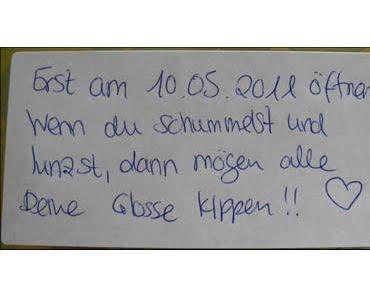 Erst am 10.05.2011 öffnen
Wenn du schummelst und
lunzst, dann mögen alle
Deine Glosse kippen!!